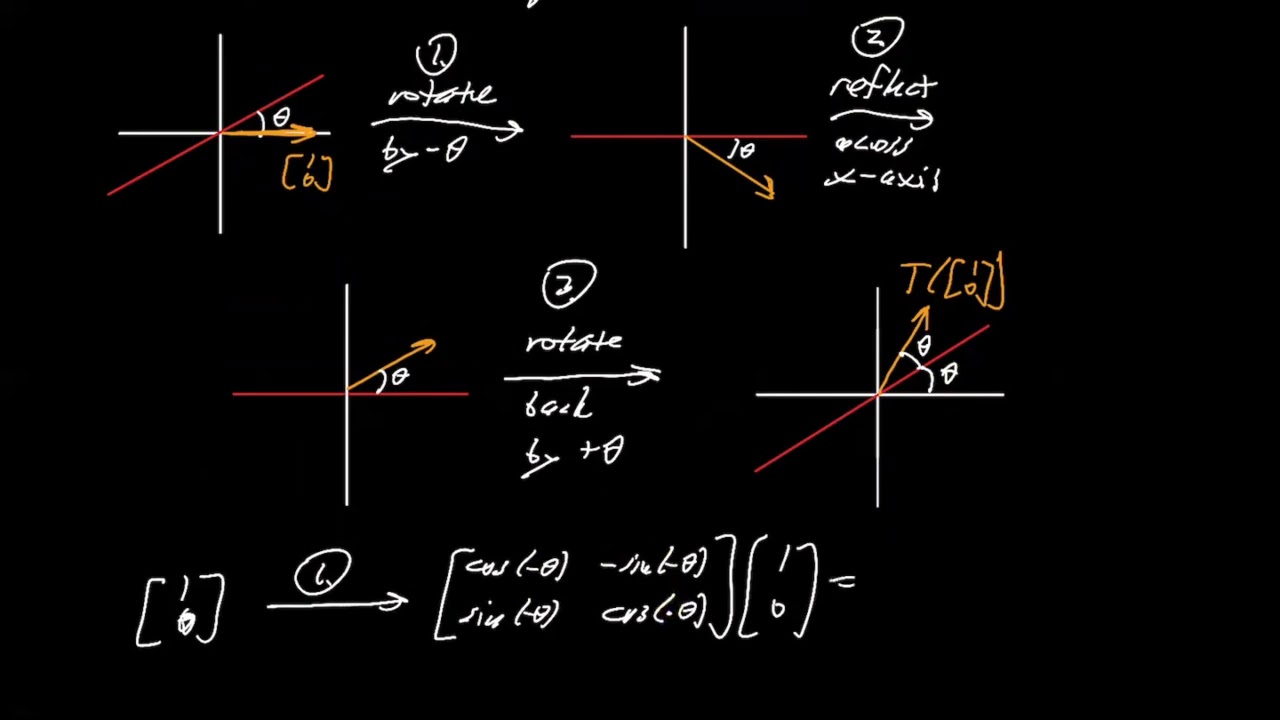 ①
rotate
by -θ
θ
[1 0]
θ
②
reflect
across
x-axis
θ
③
rotate
back
by +θ
T([1 0])
θ
θ
[1 0] ① → [cos(-θ) -sin(-θ) sin(-θ) cos(-θ)] [1 0] =